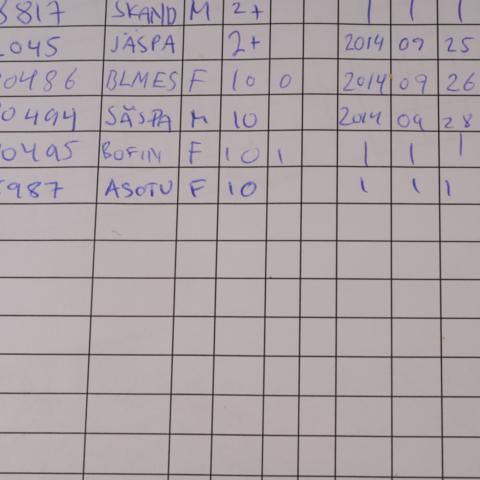 8817 SKAND M 2+ | | |
2045 JÄSPA 2+ 2014 09 25
0486 BLMES F 10 0 2014 09 26
0494 SÄSPA M 10 2014 09 28
0495 BOFIN F 10 1 | | |
987 ASOTU F 10 | | |